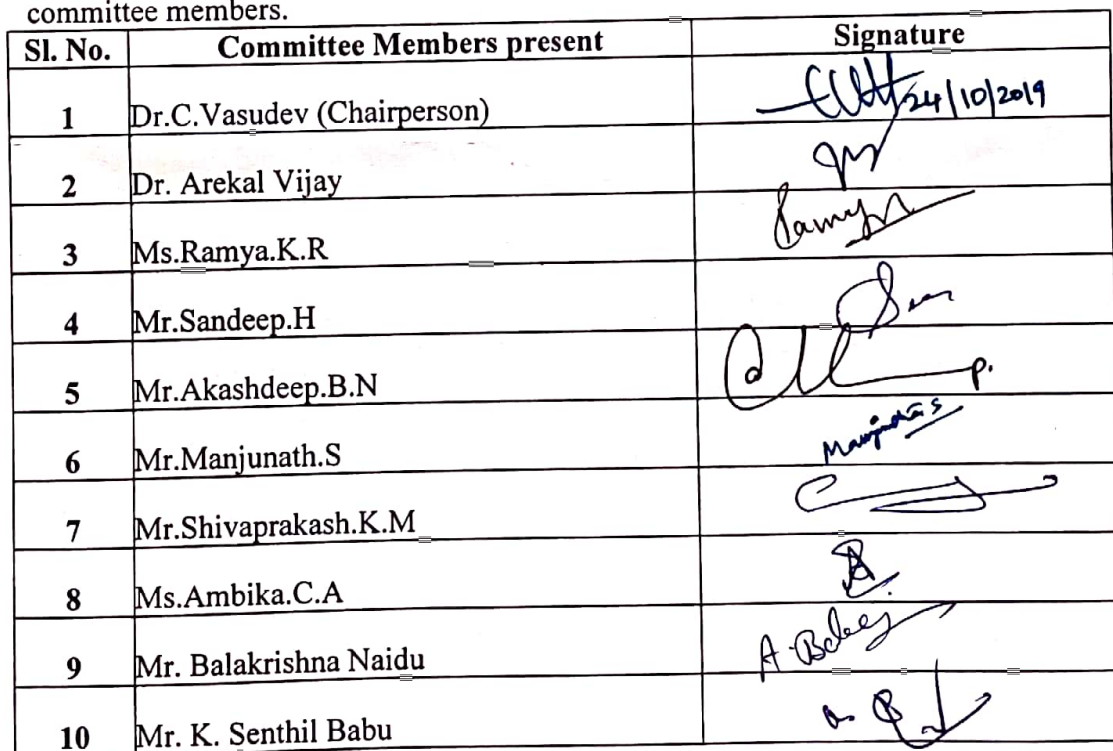 committee members.
Sl. No. Committee Members present Signature
1 Dr.C.Vasudev (Chairperson) 24/10/2019
2 Dr. Arekal Vijay
3 Ms.Ramya.K.R
4 Mr.Sandeep.H
5 Mr.Akashdeep.B.N
6 Mr.Manjunath.S
7 Mr.Shivaprakash.K.M
8 Ms.Ambika.C.A
9 Mr. Balakrishna Naidu
10 Mr. K. Senthil Babu